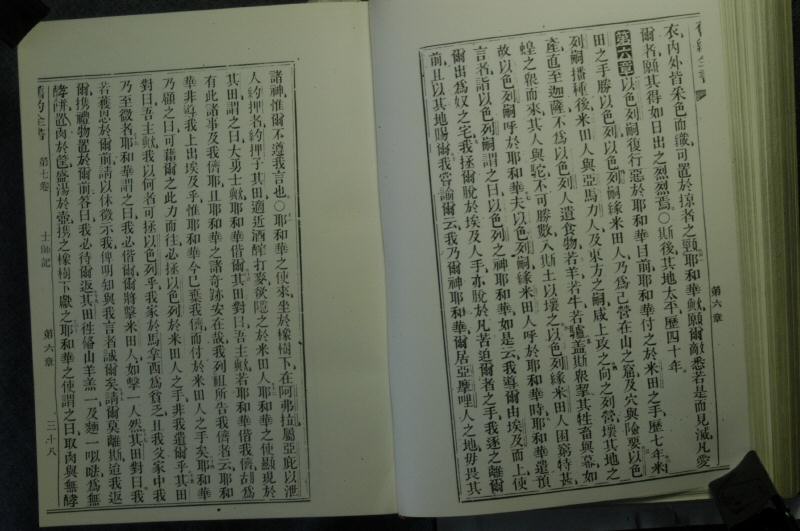 衣內外皆采色而織可置於掠者之頸耶和華歟願爾敵悉若是而見滅凡愛
爾者願其得如日出之烈烈焉○斯後其地太平歷四十年
第六章 以色列嗣復行惡於耶和華目前耶和華付之於米田之手歷七年米
田之手勝以色列以色列嗣緣米田人乃為己營在山之窟及穴與險要以色
列嗣播種後米田人與亞馬力人及東方之嗣咸上攻之向之列營壞其地之
產直至迦薩不為以色列人遺食物若羊若牛若驢蓋斯眾挈其牲畜與幕如
蝗之眾而來其人與駝不可勝數入斯土以壞之以色列緣米田人困窮特甚
故以色列嗣呼於耶和華夫以色列嗣緣米田人呼於耶和華時耶和華遣預
言者詣以色列嗣謂之曰以色列之神耶和華如是云我導爾由埃及而上使
爾出為奴之宅我拯爾脫於埃及人手亦脫於凡若迫爾者之手我逐之離爾
前且以其地賜爾我嘗諭爾云我乃爾神耶和華爾居亞摩哩人之地毋畏其
第六章
諸神惟爾不遵我言也○耶和華之使來坐於橡樹下在阿弗拉屬亞庇以泄
人約押名約押子其田適近酒醡打麥欲隱之於米田人耶和華之使顯現於
其田謂之曰大勇士歟耶和華偕爾其田對曰吾主歟若耶和華偕我儕胡為
有此諸事及我儕耶且耶和華之諸奇跡安在哉我列祖所告我儕者云耶和
華非導我上出埃及乎惟耶和華今已棄我儕而付於米田人之手矣耶和華
乃顧之曰可藉爾之此力而往必拯以色列於米田人之手非我遣爾乎其田
對曰吾主歟我以何者可拯以色列乎我家於馬拿西為貧乏且我父家中我
乃至微者耶和華謂之曰我必偕爾爾將擊米田人如擊一人然其田對曰我
若獲恩於爾前請以休徵示我俾明知與我言者誠爾矣請爾莫離斯迨我返
爾攜禮物置於爾前答曰我必待爾返其田往備山羊羔一及麵一㕥㗖為無
酵餅置肉於筐盛湯於壺攜之橡樹下獻之耶和華之使謂之曰取肉與無酵
舊約全書 第七卷 士師記 第六章 三十八